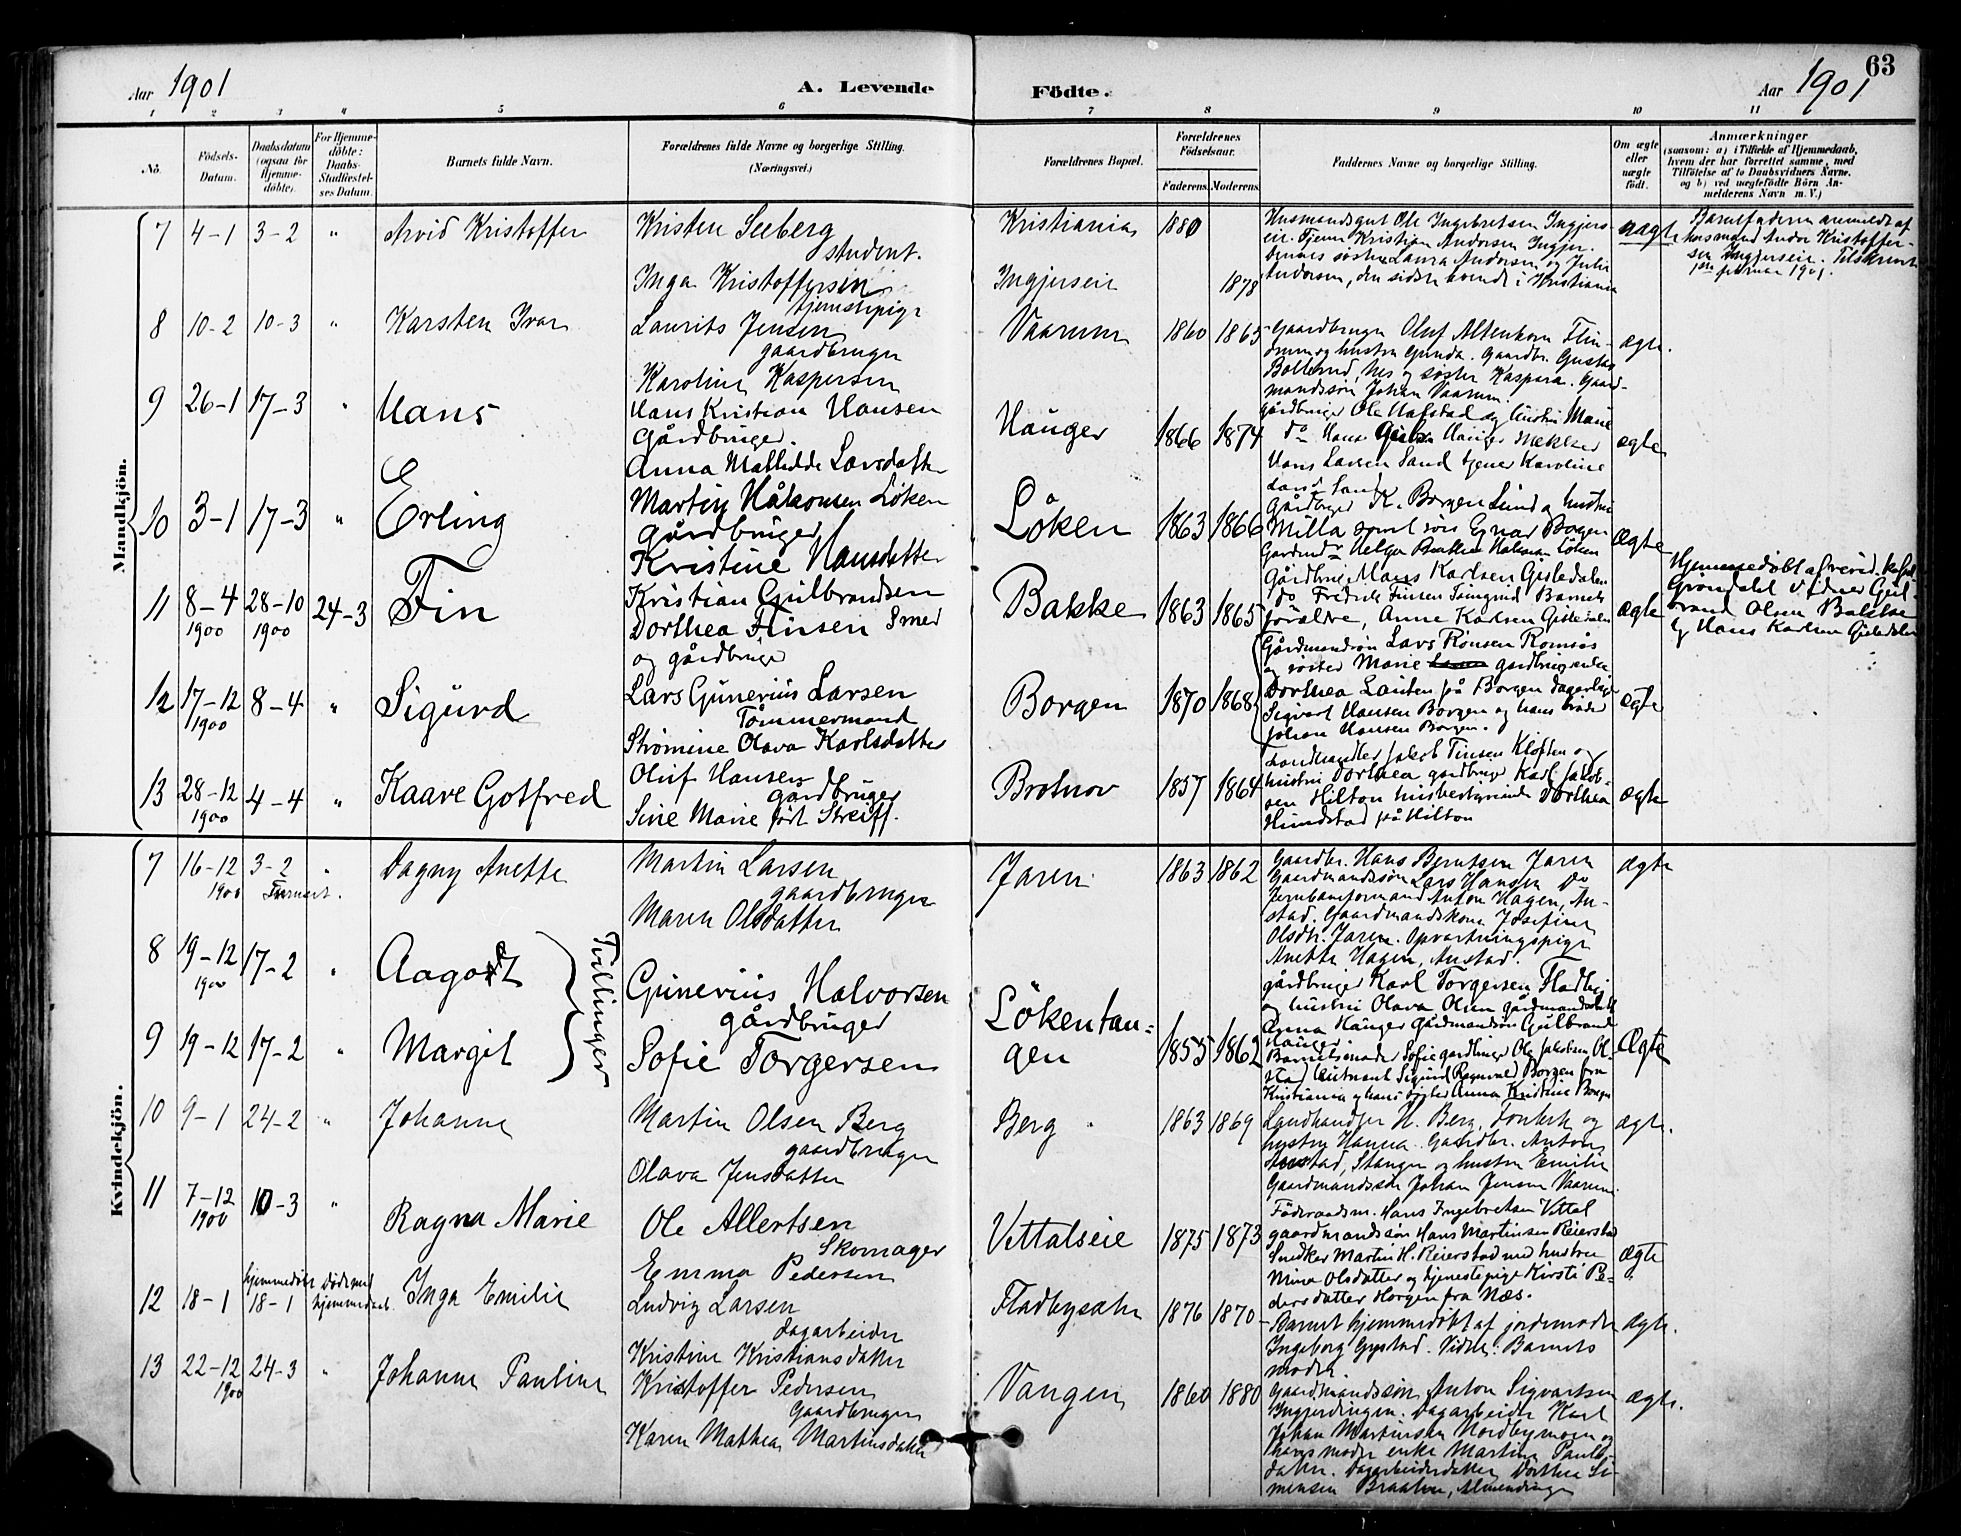 63
Aar 1901
A. Levende
Födte.
Aar 1901
1 2 3 " 5 6 7 8 9 10 11
No.
Födsels-Datum.
Daabsdatum (ogsaa for Hjemme-döbte).
For Hjemme-döbte: Daabs-Stadfæstel-ses Datum.
Barnets fulde Navn.
Forældrenes fulde Navne og borgerlige Stilling.
(Næringsvei.)
Forældrenes Bopæl.
Forældrenes Födselsaar.
Faderens. Moderens.
Faddernes Navne og borgerlige Stilling.
Om ægte eller uægte födt.
Anmærkninger
(saasom: a) i Tilfælde af Hjemmedaab,
hvem der har forrettet samme, med
Tilföielse af to Daabsvidners Navne,
og b) ved uægtefödte Börn An-
melderens Navn m. V.)
Mandkjön.
7 4-1 3-2 " Arvid Kristoffer
Kristen Seeberg
student.
Inga Kristoffersen
tjenestepige
Kristiania 1880
Ingjerseie 1878
Husmandsgut Ole Ingebretsen Ingjers-
eie. Tjener Kristian Andersen Ingjer.
dennes søster Laura Andersen og Julie
Andersen, den sidste boende i Kristiania
uægte
Barnefaderen anmeldt af
husmand Andor Kristoffer-
sen Ingjerseie.
februar 1901.
8 10-2 10-3 " Karsten Ivar
Laurits Jensen
gaardbruger
Karoline Kaspersen
Vaarum 1860 1865
Gaardbruger Oluf Altenborn
og hustru Gunda. Gaardbr. Gustav
og søster Kaspara. Gaard-
mandssøn Johan Vaarum.
ægte.
9 26-1 17-3 " Hans
Hans Kristian Hansen
Gårdbruger.
Anna Mathilde Larsdatter
Hauger 1866 1874
gårdbruger Ole Hafstad og hustru Marie
do Hans Hauger
Hans Larsen Sand tjener Karoline
Sand
ægte
10 3-1 17-3 " Erling
Martin Håkonsen Løken
gårdbruger
Kristine Hansdatter
Løken 1863 1866
gårdbruger K. Borgen Lund og hustru
Milla samt søn Egnar Borgen
Helga Bakken Løken
Ægte
11 8-4 1900 28-10 1900 24-3 Fin
Kristian Gulbrandsen
Dorthea Finsen Smed
og gårdbruger
Bakke 1863 1865
Gårdbrug Hans Karlsen Gisledalen
do Fredrik Finsen Barnets
forældre, Anne Karlsen Gisledalen
ægte
Hjemmedøbt af
Grøndahl Vidner Gul-
brand Olsen Bakke
og Hans Karlsen Gisledalen
12 17-12 1900 8-4 " Sigurd
Lars Gunerius Larsen
Tømmermand
Strømine Olava Karlsdatter
Borgen 1870 1868
Gårdmandssøn Lars Rønsen Romsås
og søster Marie gårdbrugerenke
Dorthea på Borgen
Sigvart Hansen Borgen og hans broder
Johan Hansen Borgen.
ægte
13 28-12 1900 4-4 " Kaare Gotfred
Oluf Hansen
gårdbruger
Sine Marie født Streiff.
Brotnov 1857 1864
Landhandler Jakob Finsen Kløften og
hustru Dorthea gårdbruger Karl Jakob-
sen Hilton husbestyrerinde Dorthea
Hundstad på Hilton
ægte
Kvindekjön.
7 16-12 1900 3-2 " Dagny Anette
Martin Larsen
gaardbruger
Maren Olsdatter
Jaren 1863 1862
Gaardbr. Hans Berntsen Jaren
Gaardmandssøn Lars Hansen Do
Jernbaneformand Anton Hagen, An-
stad. Gaardmandskone Josefine
Olsdtr. Jaren. Opvartningspige
Anette Hagen, Anstad.
ægte
8 19-12 1900 17-2 " Aagodt
9 19-12 17-2 " Margit
Tvillinger
Gunerius Halvorsen
gårdbruger
Sofie Torgersen
Lökentan-
gen
1855 1862
gårdbruger Karl Torgersen Fladby
og hustru Olava Olsen gårdmandsdatter
Anna Hauger Gårdmandssøn Gulbrand
Hauger.
Barnets moder Sofie gardbruger Ole Jakobsen Ol-
stad Leutnant Sigurd Ragnvald Borgen fra
Kristiania og hans søster Anna Kristine Borgen
Ægte
10 9-1 24-2 " Johanne
Martin Olsen Berg
gaardbruger
Olava Jensdatter
Berg 1863 1869
Landhandler H. Berg, og
hustru Hanna. Gaardbr. Anton
Anstad, Stanger og hustru Emilie
Gaardmandssøn Johan Jensen Vaarum.
ægte.
11 7-12 1900 10-3 " Ragna Marie
Ole Allertsen
Skomager
Emma Pedersen
Vittalseie 1875 1873
Föderaadsm. Hans Ingebretsen Vittal
gaardmandssøn Hans Martinsen Reierstad
Snedker Martin H. Reierstad med hustru
Mina Olsdatter og tjenestepige Kirsti Pe-
dersdatter Horgen fra Næs.
ægte
12 18-1 hjemmedøbt 18-1 Død med hjemmedaab. Inga Emilie
Ludvig Larsen
dagarbeider
Kristine Kristiansdatter
Fladbysæter 1876 1870
Barnet hjemmedøbt af jordemoder
Ingeborg Gystad. Vidne: Barnets
moder.
ægte.
13 22-12 1900 24-3 " Johanne Pauline
Kristoffer Pedersen
Gaardbruger
Karen Mathea Martinsdatter
Vangen 1860 1880
Gaardmandssøn Anton Sigvartsen
Ingjerdingen. Dagarbeider Karl
Johan Martinsen Nordbymoen og
hans moder enke Martine Pauls-
datter. Dagarbeiderdatter Dorthea Si-
mensen Braaten, Almendingen
ægte.